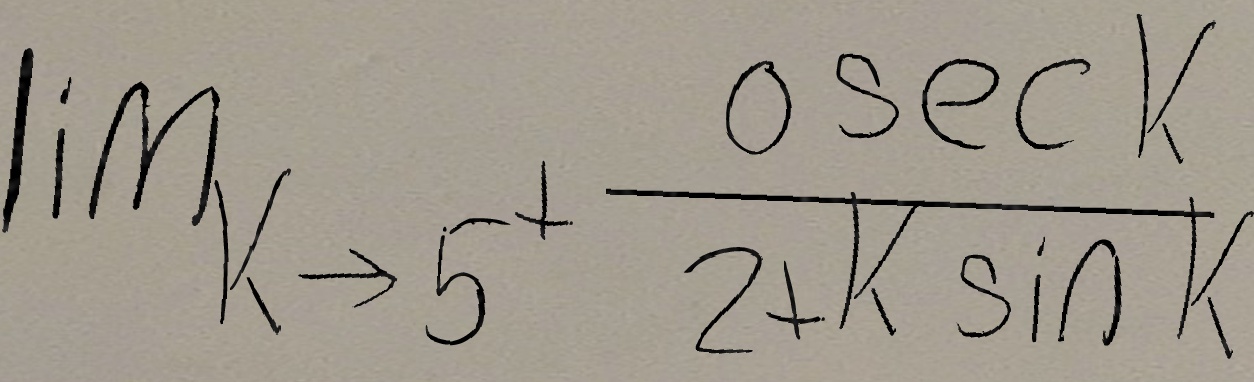 lim K→5⁺ 0 sec K / 2+K sin K